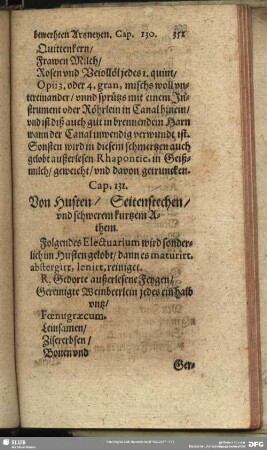 bewerhten Artzneyen. Cap. 130. 351
Quittenkern/
Frawen Milch/
Rosen vnd Veiollöl jedes 1. quint/
Opii 3. oder 4. gran, mischs woll vn-
tereinander/ vnnd sprützs mit einem In-
strument oder Röhrlein in Canal hinein/
vnd ist diß auch gut in brennendem Harn
wann der Canal inwendig verwundt ist.
Sonsten wird in diesem schmertzen auch
gelobt außerlesen Rhapontic. in Geiß-
milch/ geweicht/ vnd davon getruncken.
Cap. 131.
Von Husten/ Seitenstechen/
vnd schwerem kurtzem A-
them.
Folgendes Electuarium wird sonder-
lich im Husten gelobt/ dann es maturirt,
abstergirt, lenirt, reiniget.
R. Gedorte außerlesene Feygen/
Gereinigte Weinbeerlein jedes ein halb
vntz/
Fœnugræcum.
Leinsamen/
Zisererbsen/
Bonen vnd
Ger-
SLUB
DFG